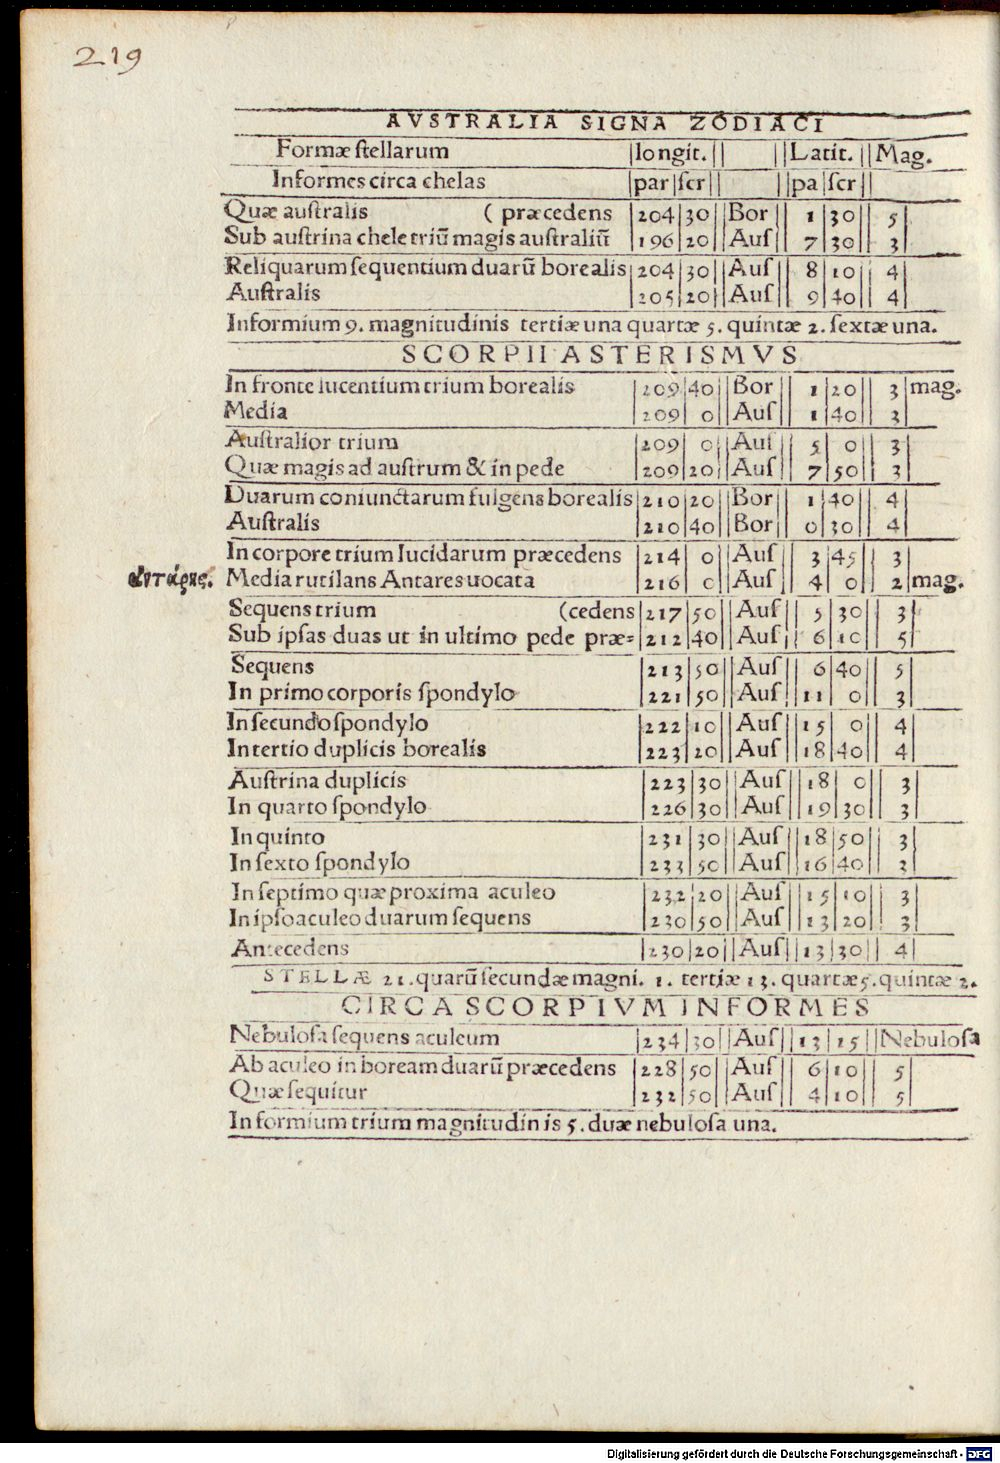 219
AVSTRALIA SIGNA ZODIACI
Formæ stellarum |longit.|| || Latit. || Mag.
Informes circa chelas |par|scr|| ||pa|scr||
Quæ australis ( præcedens |204|30||Bor || 1|30|| 5|
Sub austrina chele triũ magis australiũ |196|20||Aus || 7|30|| 3|
Reliquarum sequentium duarũ borealis |204|30||Aus || 8|10|| 4|
Australis |205|20||Aus || 9|40|| 4|
Informium 9. magnitudinis tertiæ una quartæ 5. quintæ 2. sextæ una.
SCORPII ASTERISMVS
In fronte lucentium trium borealis |209|40||Bor || 1|20|| 3|mag.
Media |209| 0||Aus || 1|40|| 3|
Australior trium |209| 0||Aus || 5| 0|| 3|
Quæ magis ad austrum & in pede |209|20||Aus || 7|50|| 3|
Duarum coniunctarum fulgens borealis |210|20||Bor || 1|40|| 4|
Australis |210|40||Bor || 0|30|| 4|
In corpore trium lucidarum præcedens |214| 0||Aus || 3|45|| 3|
ἀντάρης. Media rutilans Antares uocata |216| 0||Aus || 4| 0|| 2|mag.
Sequens trium (cedens |217|50||Aus || 5|30|| 3|
Sub ipsas duas ut in ultimo pede præ= |212|40||Aus || 6|10|| 5|
Sequens |213|50||Aus || 6|40|| 5|
In primo corporis spondylo |221|50||Aus ||11| 0|| 3|
In secundo spondylo |222|10||Aus ||15| 0|| 4|
In tertio duplicis borealis |223|20||Aus ||18|40|| 4|
Austrina duplicis |223|30||Aus ||18| 0|| 3|
In quarto spondylo |226|30||Aus ||19|30|| 3|
In quinto |231|30||Aus ||18|50|| 3|
In sexto spondylo |233|50||Aus ||16|40|| 3|
In septimo quæ proxima aculeo |232|20||Aus ||15|10|| 3|
In ipso aculeo duarum sequens |230|50||Aus ||13|20|| 3|
Antecedens |230|20||Aus ||13|30|| 4|
STELLÆ 21. quarũ secundæ magni. 1. tertiæ 13. quartæ 5. quintæ 2.
CIRCA SCORPIVM INFORMES
Nebulosa sequens aculeum |234|30||Aus ||13|15||Nebulosa
Ab aculeo in boream duarũ præcedens |228|50||Aus || 6|10|| 5|
Quæ sequitur |232|50||Aus || 4|10|| 5|
Informium trium magnitudinis 5. duæ nebulosa una.
Digitalisierung gefördert durch die Deutsche Forschungsgemeinschaft - DFG